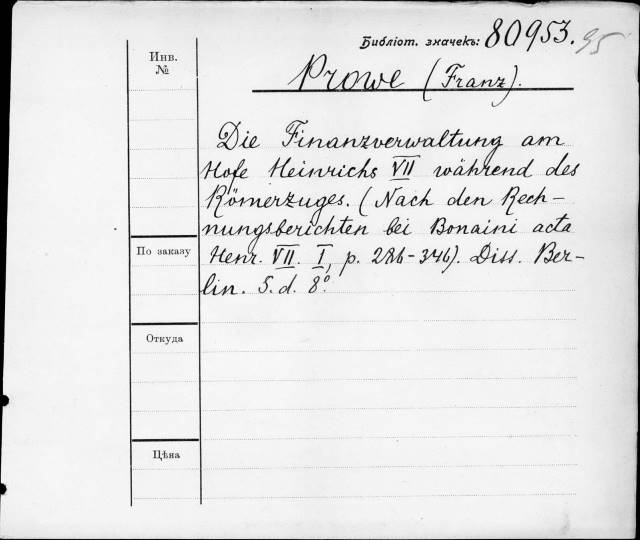 Библіот. значекъ: 80953. 95
Инв.
№
Prowe (Franz).
Die Finanzverwaltung am
Hofe Heinrichs VII während des
Römerzuges. (Nach den Rech-
nungsberichten bei Bonaini acta
Henr. VII. I, p. 286-346). Diss. Ber-
lin. S. d. 8°.
По заказу
Откуда
Цѣна